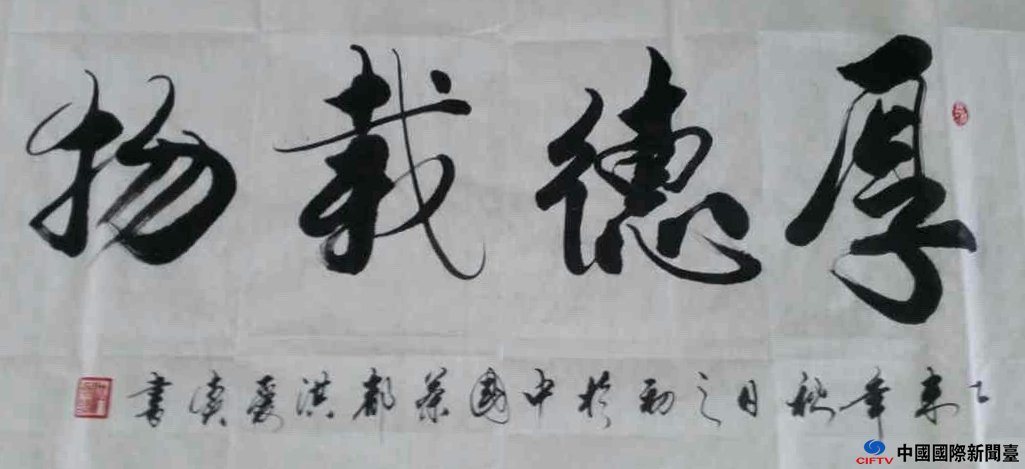 厚德載物
乙未年秋月之初於中國藥都洪愛資書
CIFTV 中國國際新聞臺